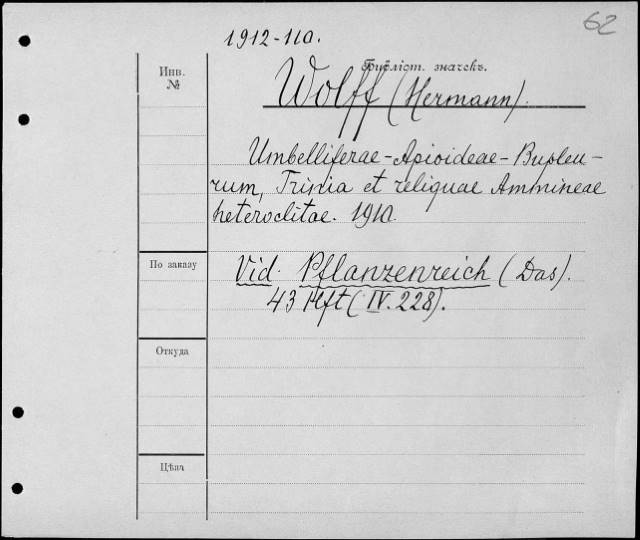 62
1912-110.
Инв.
№
Библіот. значекъ.
Wolff (Hermann).
Umbelliferae-Apioideae-Bupleu-
rum, Trinia et reliquae Ammineae
heteroclitae. 1910.
По заказу
Vid. Pflanzenreich (Das).
43 Hft (IV. 228).
Откуда
Цѣна